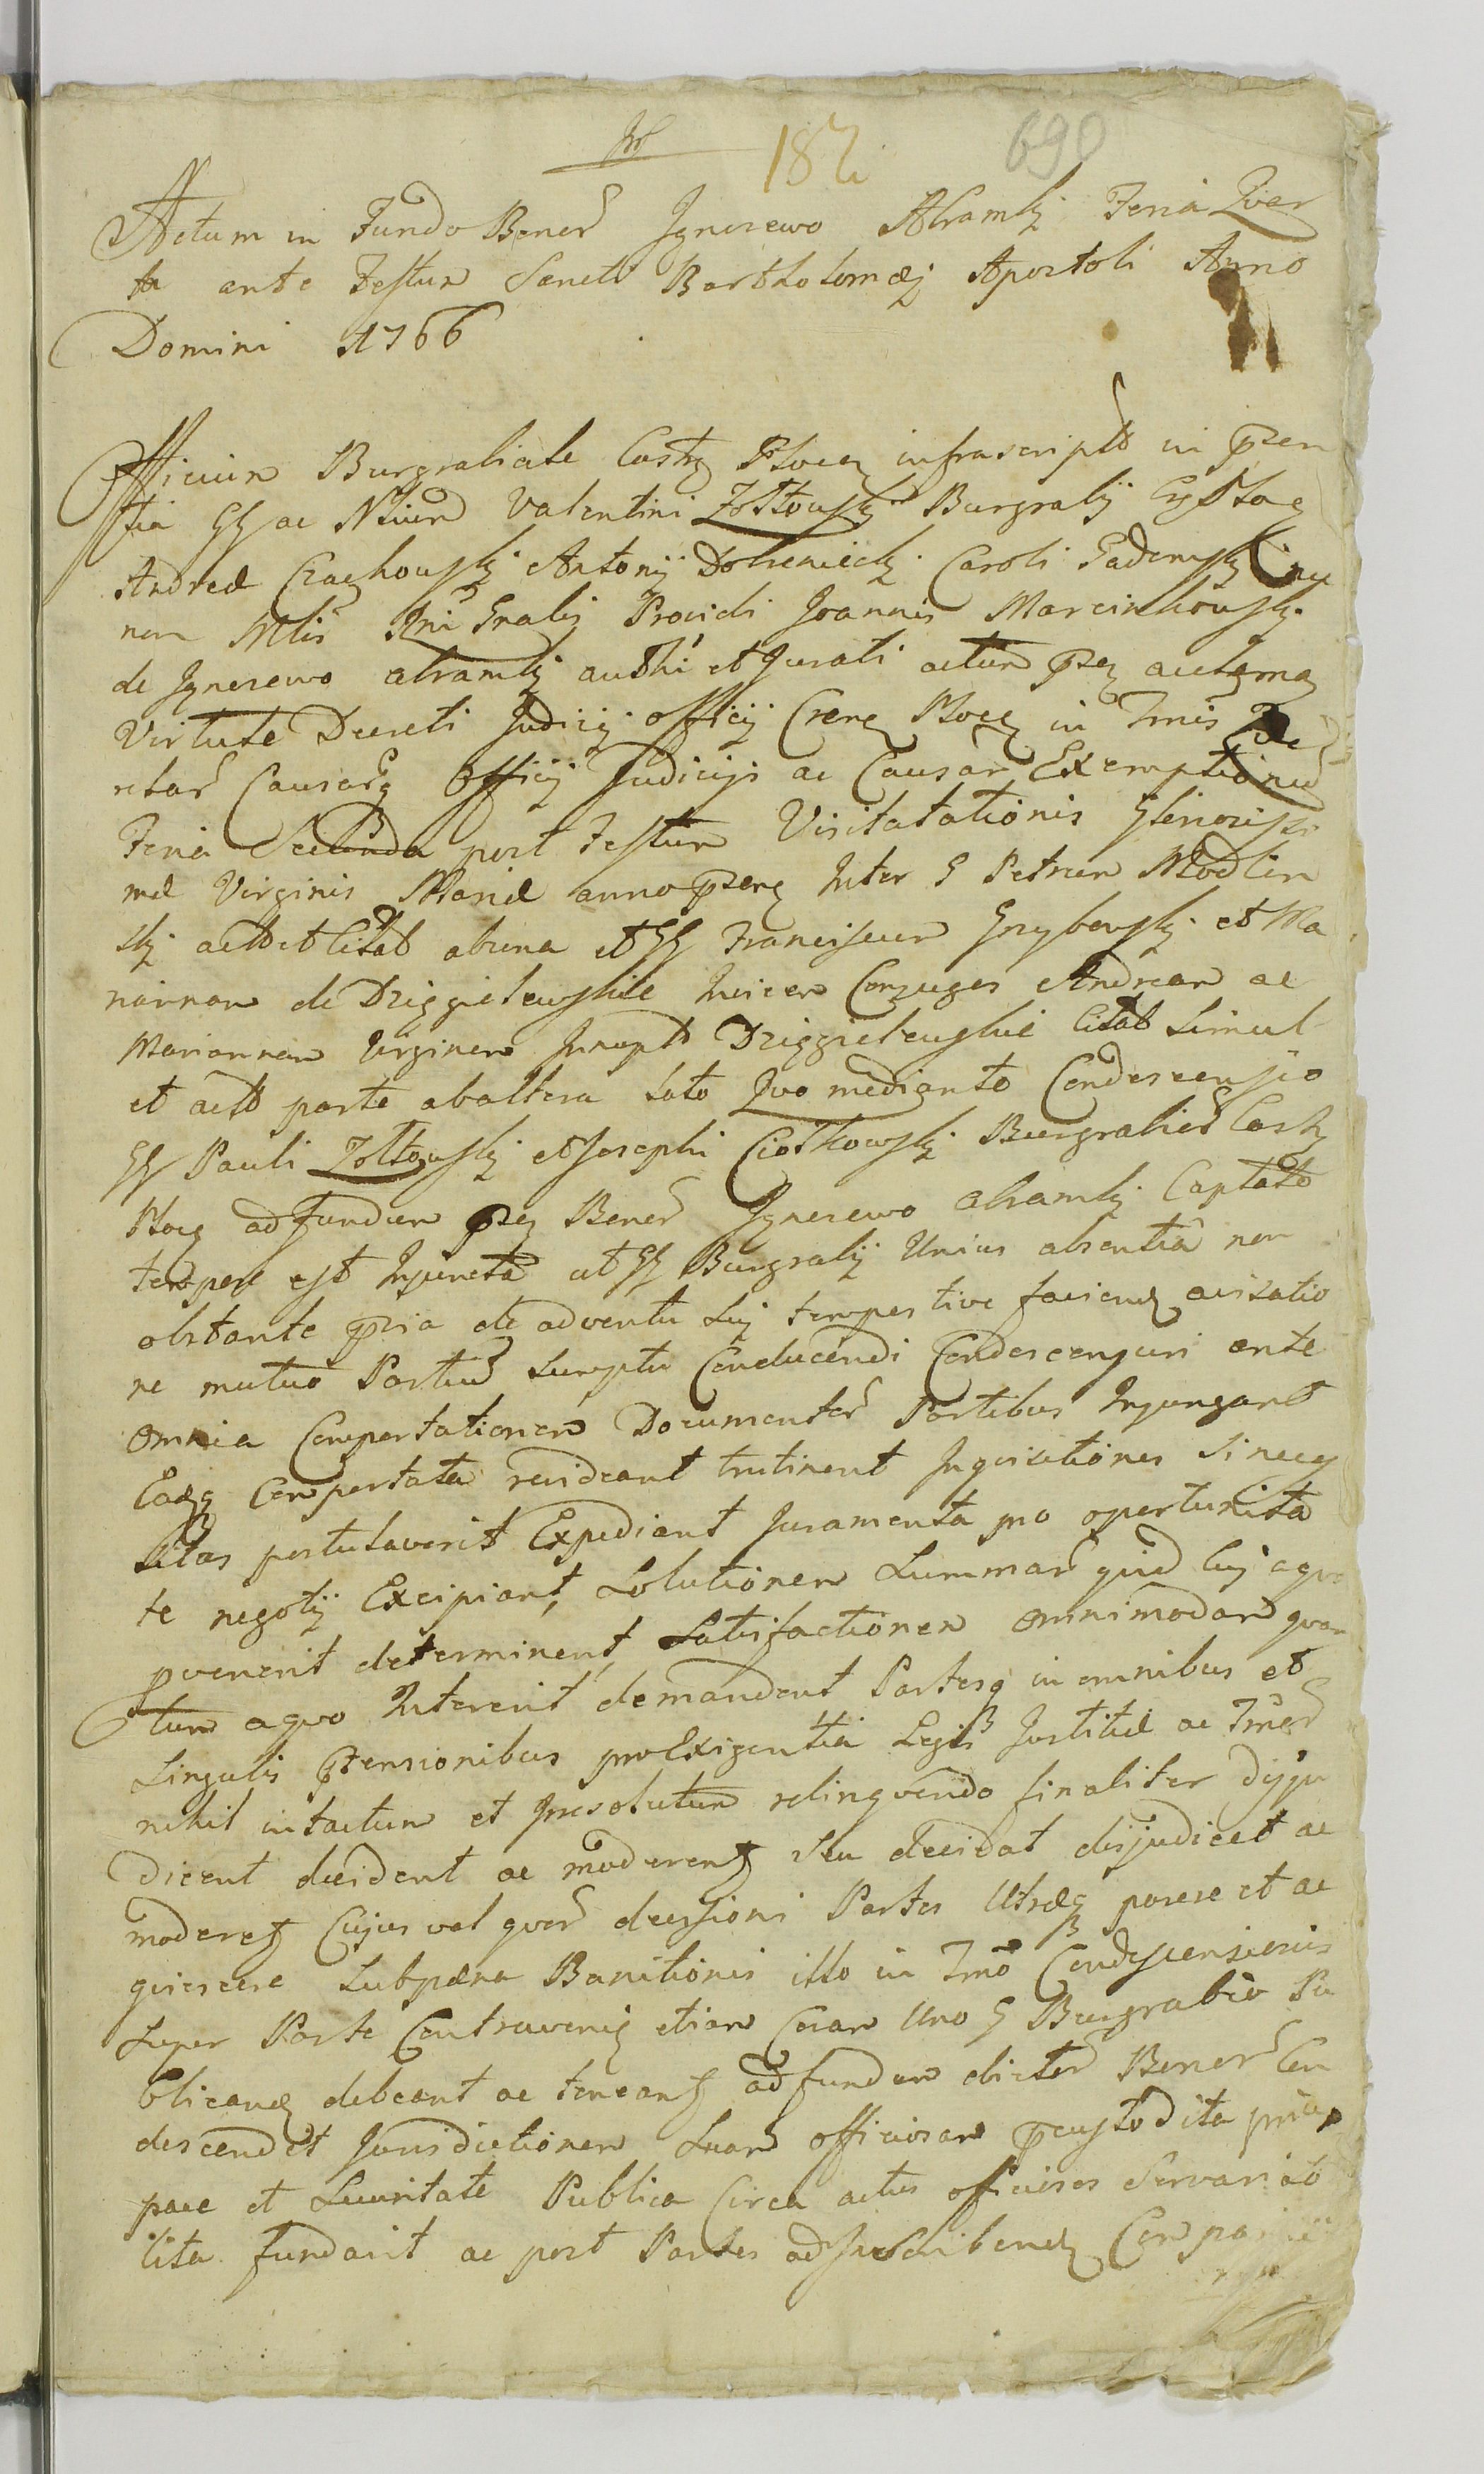 182 690
Actum in Fundo Bonor Ignesewo Abramky Feria Quar
ta ante Festum Sancti Bartholomæj Apostoli Anno
Domini 1766
Officium Burgrabiale Castr Ploceñ infrascript in præsen
tia GG ac Valentini Zołtowskj Burgrabij Ploceñ
Andreæ Czachowskj Antonij Caroli Gadomskj
non Mtis Gnalis Providi Joannis Marcinkowskj
de Ignesewo abramky authi et Jurati actum actema
Virtute Decreti Judicij officij Ploceñ in Tmis
retar Causarq Officij Judicijs ac Causar Exemptionu
Feria Secunda post Festum Visitatationis Glorioziss
mæ Virginis Mariæ anno præsenq Inter G Petrum Modlin
skj actt et Citat abuna et GG Franciscum Grzybowskj et Ma
riannam de Dziggielewskie Invicem Conjuges Andream ac
Mariannam Virginem Innupt Dziggielewskie Citat Simul
et actt parte abaltera Lato Quo mediante Condescensio
GG Pauli Zołtowskj et Josephi Ciołkowskj Burgrabior Castr
Ploceñ ad fundum Bonor Ignesewo abramky Captato
tempore est Injuncta ut GG Burgrabij Unius absentia non
obstante pvia de adventu Suj tempestive faciend avisatio
ne mutuo Partiu Sumptu Conducendi Condescensuri ante
omnia Comportationem Documentor Partibus Injungant
Eaqq Comportata revideant trutinent Inquisitiones si neces
sitas postulaverit Expediant Juramenta pro opertunita
te negotij Excipiant, Solutionem Summar quid Cuj aquo
pvenerit determinent, Satisfactionem omnimodam quan
tum aquo Intererit demandent Partesq in omnibus et
Singulis prtensionibus pro Exigentia Legis Justitiæ ac
nihil intactum et Inresolutum relinqvendo finaliter dijju
dicent decident ac moderentq seu decidat dijudicet ac
moderetq Cujus vel quor decissioni Partes Utræqq parere et ac
quiescere Subpæna Banitionis illo in Tmo Condescensionis
Super Parte Contraveniq etiam Coram Uno G Burgrabio Pu
blicand debeant ac teneantq ad fundum dictor Bonor Con
descendet Jurisdictionem Suam officiosam pcustodita
pace et Securitate Publica Circa actus officiosos Servari
lita fundarit ac post Partes ad Inscribend